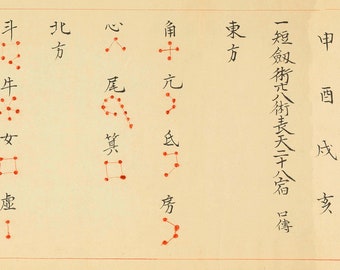 申酉戌亥
一短劔術廿八術表天二十八宿 口傳
東方
角亢氐房
心尾箕
北方
斗牛女虚